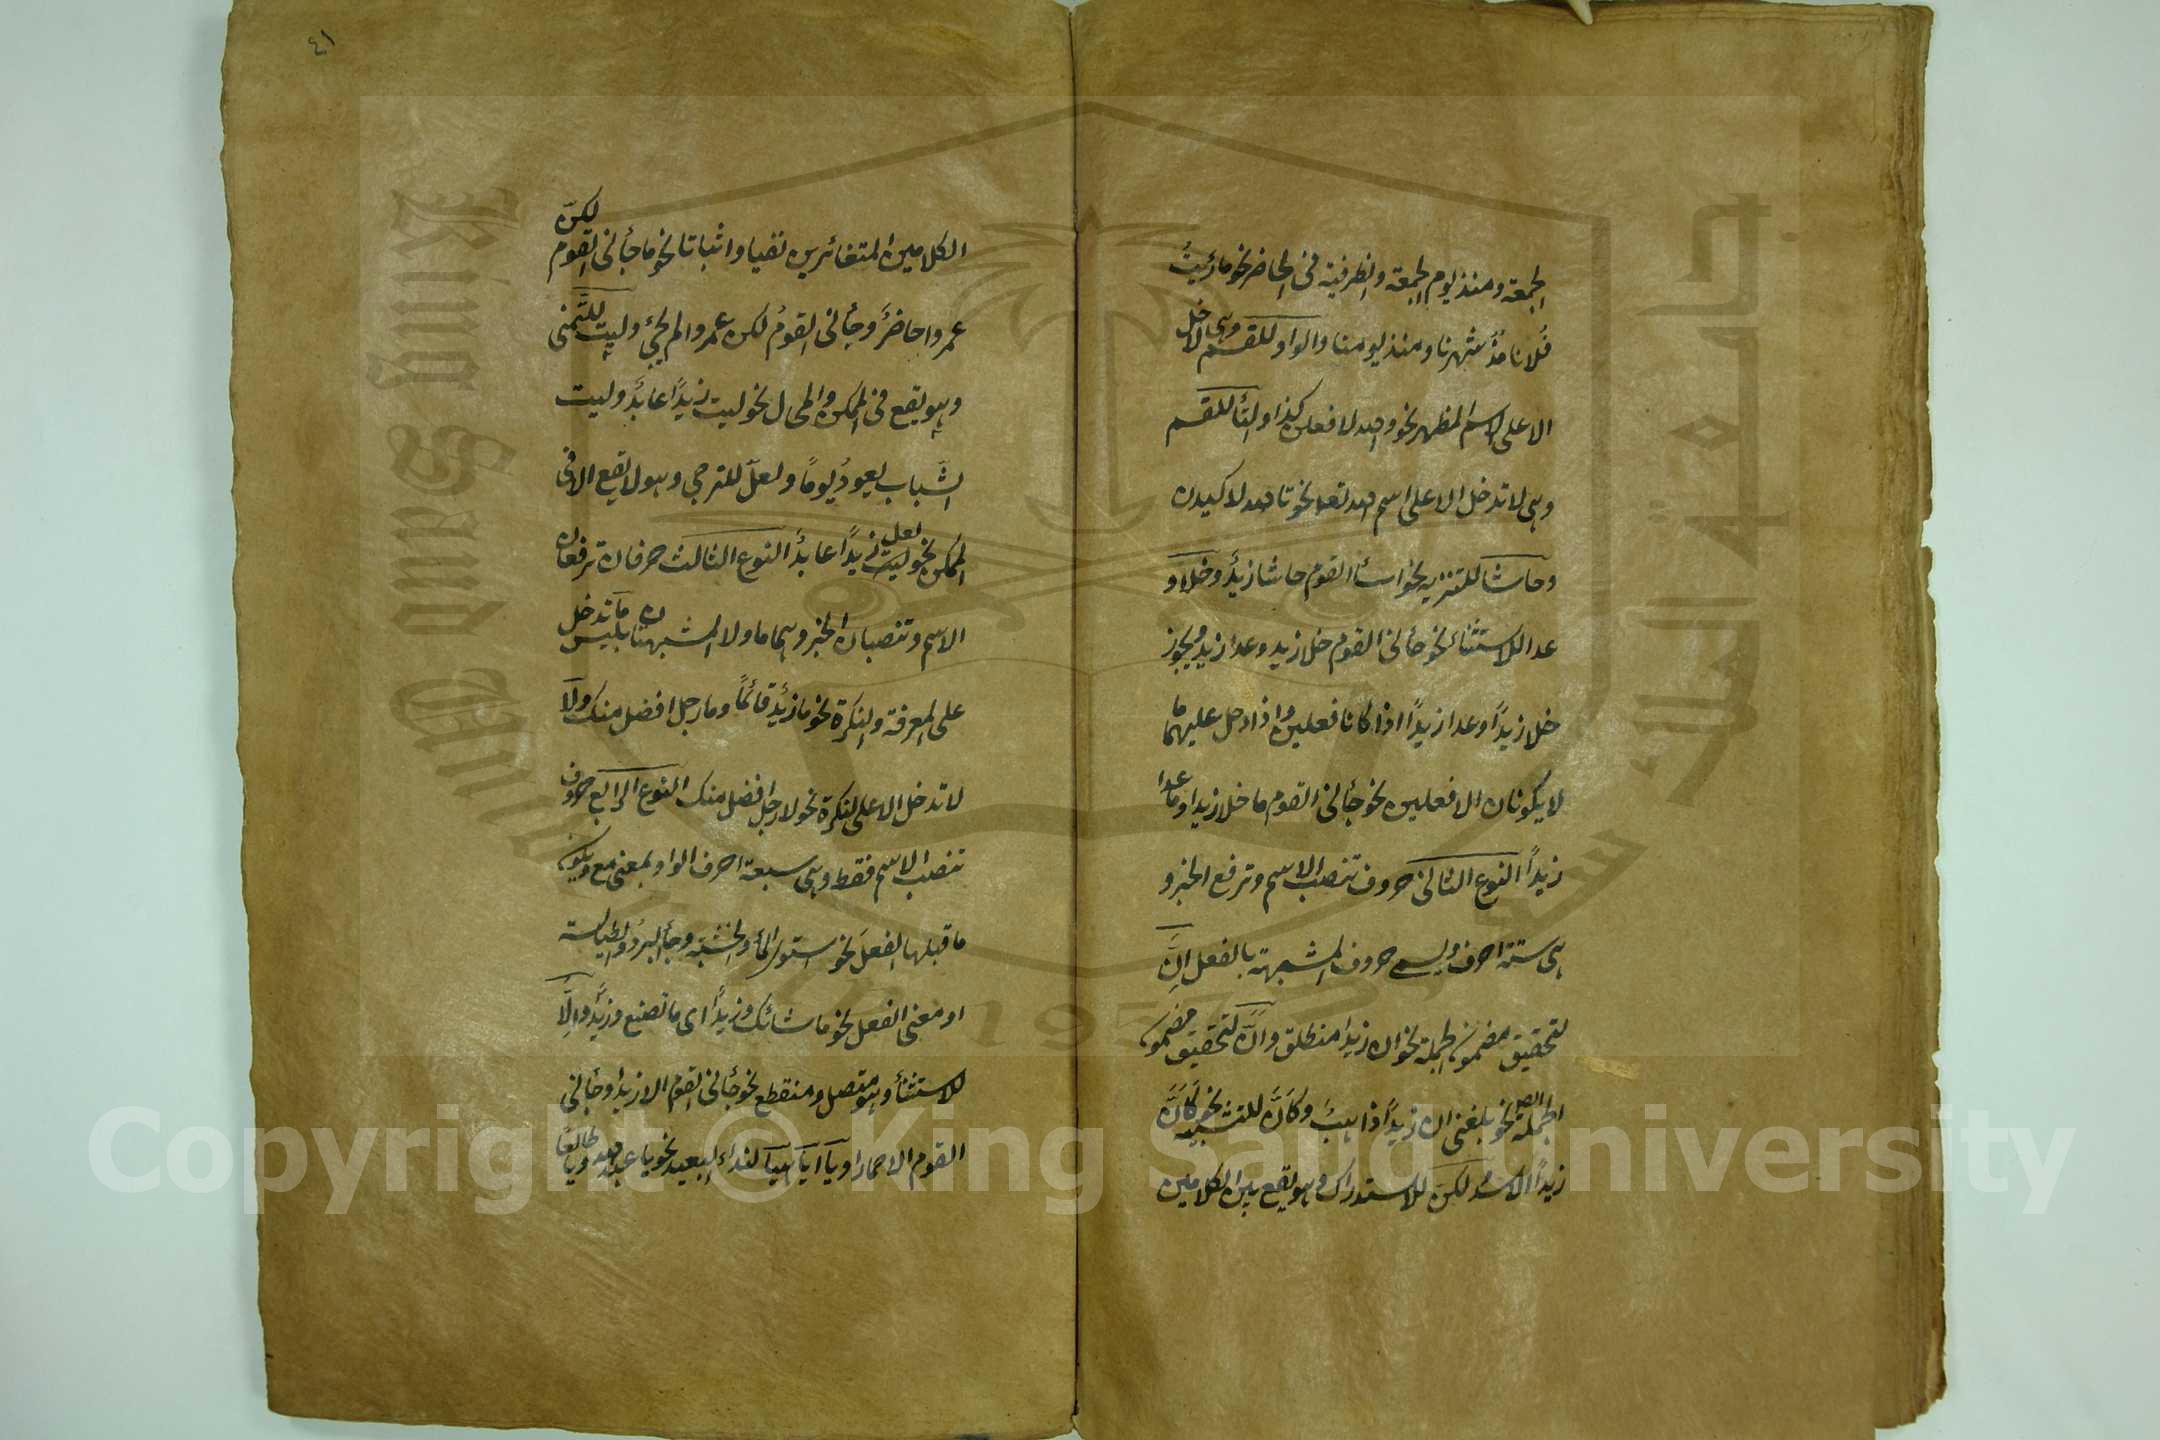 الجمعة ومنذ يوم الجمعة والظرفية فى الحاضر نحو ما رئيتُ
فُلانا مُذْ شهرنا ومنذ يومنا والواو للقسم وهى لا تدخل
الا على الاسم المظهر نحو والله لا فعلن كذا والتأ للقسم
وهى لا تدخل الا على اسم الله تعالى نحو تا لله لا كيدن
وحاشا للتنزيه نحو اسأ القوم حاشا زيدٍ وخلا و
عدا للاستثناء نحو جأنى القوم خلا زيد وعدا زيد ويجوز
خلا زيدًا وعدا زيدًا اذا كانا فعلين واذا دخل عليهما ما
لا يكونان الا فعلين نحو جأنى القوم ما خلا زيدا وما عدا
زيدًا النوع الثانى حروف تنصب الاسم وترفع الخبر و
هى ستة احرف ويسمى حروف المشبهة بالفعل اِنَّ
لتحقيق مضمون الجملة نحو ان زيدا منطلق واَنَّ لتحقيق مضمون
الجملة نحو بلغنى ان زيدًا ذاهبٌ وكَاَنَّ للتشبيه نحو كَاَنَّ
زيدًا الاسدُ لكنّ للاستدراك وهو يقع بين الكلامين
٤١
الكلامين المتغائرين نفيا واثباتا نحو ما جأنى القوم لكنّ
عمروا حاضرٌ وجأنى القومُ لكن عمروا لم يجئ وليت للتّمنى
وهو يقع فى الممكن والمحال نحو ليت زيدًا عابدٌ وليت
الشّباب يعودُ يومًا ولعلّ للترجى وهو لا يقع الا فى
الممكن نحو ليت لعل زيدًا عابدٌ النوع الثالث حرفان ترفعان
الاسم وتنصبان الخبر وهما ما ولا المشبهتان بليس ما تدخل
على المعرفة والنكرة نحو ما زيدٌ قائمًا وما رجل افضل منك ولا
لا تدخل الا على النكرة نحو لا رجل افضل منك النوع الرابع حروف
تنصب الاسم فقط وهى سبعة احرف الواو بمعنى مع ويكون
ما قبلها الفعلَ نحو استوى المأ والخشبة وجأ البردُ والطيالسة
او معنى الفعل نحو ما شانك وزيدًا اى ما تصنع وزيدًا واِلّا
للاستثنأ وهو متصل ومنقطع نحو جأنى القوم الا زيدا وجأنى
القوم الا حمارا ويا ايا هيا لنداء البعيد نحو يا عبد الله ويا طالعًا